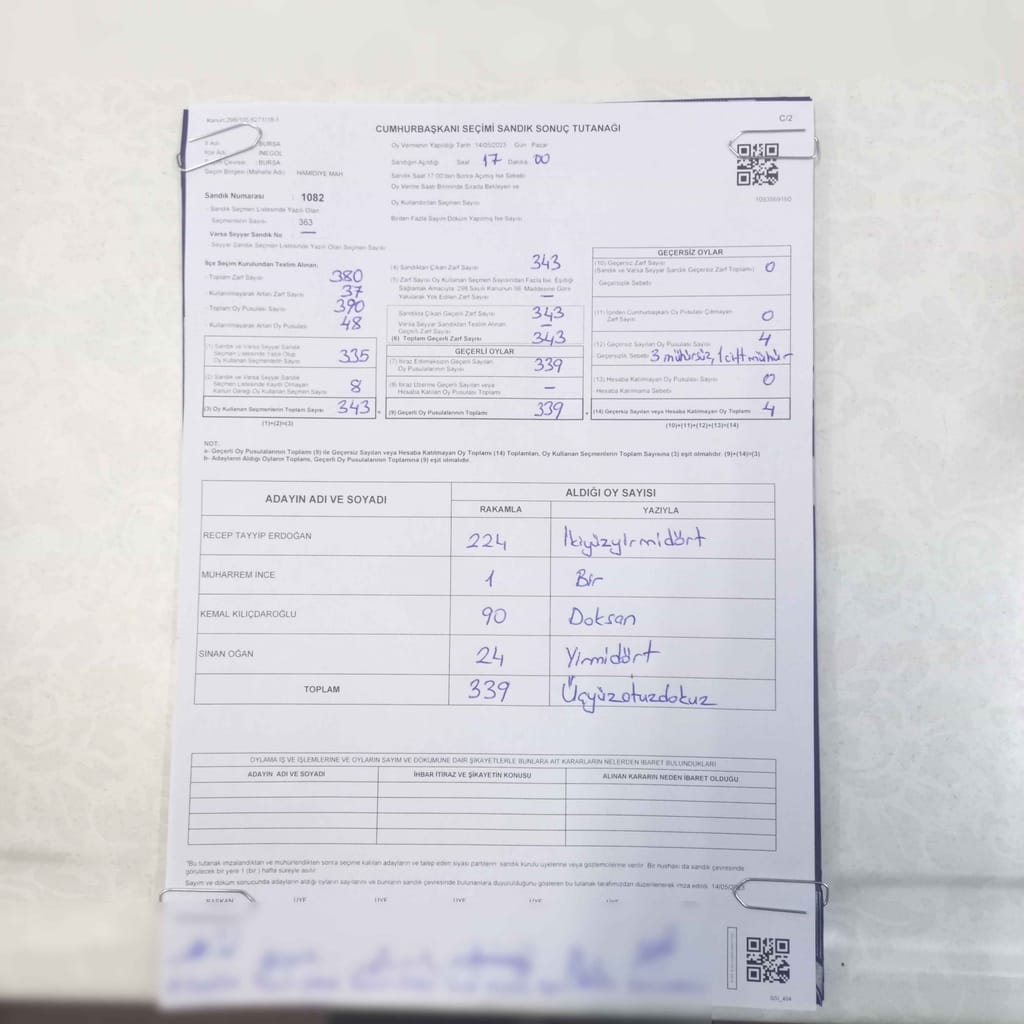 Kanun:298/105,6271/18-1
C/2
CUMHURBAŞKANI SEÇİMİ SANDIK SONUÇ TUTANAĞI
İl Adı : BURSA
İlçe Adı : İNEGÖL
Seçim Çevresi : BURSA
Seçim Bölgesi (Mahalle Adı) : HAMİDİYE MAH
Sandık Numarası : 1082
- Sandık Seçmen Listesinde Yazılı Olan
Seçmenlerin Sayısı : 363
Varsa Seyyar Sandık No : —
- Seyyar Sandık Seçmen Listesinde Yazılı Olan Seçmen Sayısı
Oy Vermenin Yapıldığı Tarih : 14/05/2023 Gün : Pazar
Sandığın Açıldığı Saat 17 Dakika 00
Sandık Saat 17:00'den Sonra Açılmış İse Sebebi
Oy Verme Saati Bitiminde Sırada Bekleyen ve
Oy Kullandırılan Seçmen Sayısı
Birden Fazla Sayım Döküm Yapılmış İse Sayısı
1093569160
İlçe Seçim Kurulundan Teslim Alınan:
- Toplam Zarf Sayısı 380
- Kullanılmayarak Artan Zarf Sayısı 37
- Toplam Oy Pusulası Sayısı 390
- Kullanılmayarak Artan Oy Pusulası 48
(1) Sandık ve Varsa Seyyar Sandık
Seçmen Listesinde Yazılı Olup
Oy Kullanan Seçmenlerin Sayısı 335
(2) Sandık ve Varsa Seyyar Sandık
Seçmen Listesinde Kayıtlı Olmayan
Kanun Gereği Oy Kullanan Seçmen Sayısı 8
(3) Oy Kullanan Seçmenlerin Toplam Sayısı 343 =
(1)+(2)=(3)
(4) Sandıktan Çıkan Zarf Sayısı 343
(5) Zarf Sayısı Oy Kullanan Seçmen Sayısından Fazla İse, Eşitliği
Sağlamak Amacıyla; 298 Sayılı Kanunun 98. Maddesine Göre
Yakılarak Yok Edilen Zarf Sayısı —
Sandıkta Çıkan Geçerli Zarf Sayısı 343
Varsa Seyyar Sandıktan Teslim Alınan
Geçerli Zarf Sayısı —
(6) Toplam Geçerli Zarf Sayısı 343
GEÇERLİ OYLAR
(7) İtiraz Edilmeksizin Geçerli Sayılan
Oy Pusulalarının Sayısı 339
(8) İtiraz Üzerine Geçerli Sayılan veya
Hesaba Katılan Oy Pusulası Toplamı —
(9) Geçerli Oy Pusulalarının Toplamı 339 +
GEÇERSİZ OYLAR
(10) Geçersiz Zarf Sayısı 0
(Sandık ve Varsa Seyyar Sandık Geçersiz Zarf Toplamı)
- Geçersizlik Sebebi:
(11) İçinden Cumhurbaşkanı Oy Pusulası Çıkmayan
Zarf Sayısı 0
(12) Geçersiz Sayılan Oy Pusulası Sayısı 4
- Geçersizlik Sebebi: 3 mühürsüz, 1 çift mühür
(13) Hesaba Katılmayan Oy Pusulası Sayısı 0
- Hesaba Katılmama Sebebi
(14) Geçersiz Sayılan veya Hesaba Katılmayan Oy Toplamı 4
(10)+(11)+(12)+(13)=(14)
NOT:
a- Geçerli Oy Pusulalarının Toplamı (9) ile Geçersiz Sayılan veya Hesaba Katılmayan Oy Toplamı (14) Toplamları, Oy Kullanan Seçmenlerin Toplam Sayısına (3) eşit olmalıdır. (9)+(14)=(3)
b- Adayların Aldığı Oyların Toplamı, Geçerli Oy Pusulalarının Toplamına (9) eşit olmalıdır.
ADAYIN ADI VE SOYADI ALDIĞI OY SAYISI
RAKAMLA YAZIYLA
RECEP TAYYIP ERDOĞAN 224 İkiyüzyirmidört
MUHARREM İNCE 1 Bir
KEMAL KILIÇDAROĞLU 90 Doksan
SİNAN OĞAN 24 Yirmidört
TOPLAM 339 Üçyüzotuzdokuz
OYLAMA İŞ VE İŞLEMLERİNE VE OYLARIN SAYIM VE DÖKÜMÜNE DAİR ŞİKAYETLERLE BUNLARA AİT KARARLARIN NELERDEN İBARET BULUNDUKLARI
ADAYIN ADI VE SOYADI İHBAR İTİRAZ VE ŞİKAYETİN KONUSU ALINAN KARARIN NEDEN İBARET OLDUĞU
"Bu tutanak imzalandıktan ve mühürlendikten sonra seçime katılan adayların ve talep eden siyasi partilerin sandık kurulu üyelerine veya gözlemcilerine verilir. Bir nushası da sandık çevresinde
görülecek bir yere 1 (bir ) hafta süreyle asılır.
Sayım ve döküm sonucunda adayların aldığı oyların sayılarını ve bunların sandık çevresinde bulunanlara duyurulduğunu gösteren bu tutanak tarafımızdan düzenlenerek imza edildi. 14/05/2023
BAŞKAN ÜYE ÜYE ÜYE ÜYE ÜYE